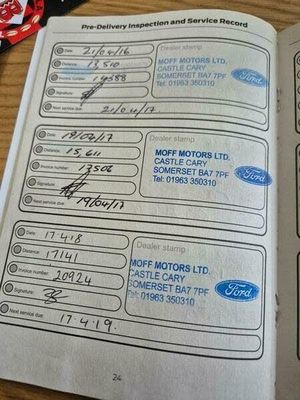 Pre-Delivery Inspection and Service Record
Date: 21/04/16
Distance: 13,510
Invoice number:
Signature:
Next service due: 21/04/17
Dealer stamp
MOFF MOTORS LTD.
CASTLE CARY
SOMERSET BA7 7PF
Tel: 01963 350310
Ford
Date: 19/04/17
Distance: 15,611
Invoice number: 13506
Signature:
Next service due: 19/04/17
Dealer stamp
MOFF MOTORS LTD.
CASTLE CARY
SOMERSET BA7 7PF
Tel: 01963 350310
Ford
Date: 17·4·18
Distance: 17141
Invoice number: 20924
Signature:
Next service due: 17·4·19.
Dealer stamp
MOFF MOTORS LTD.
CASTLE CARY
SOMERSET BA7 7PF
Tel: 01963 350310
Ford
24